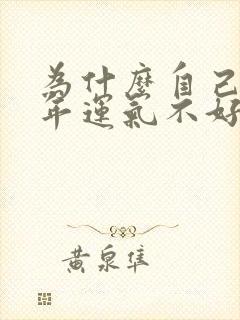 為什麼自己
年運氣不好
黃泉隼